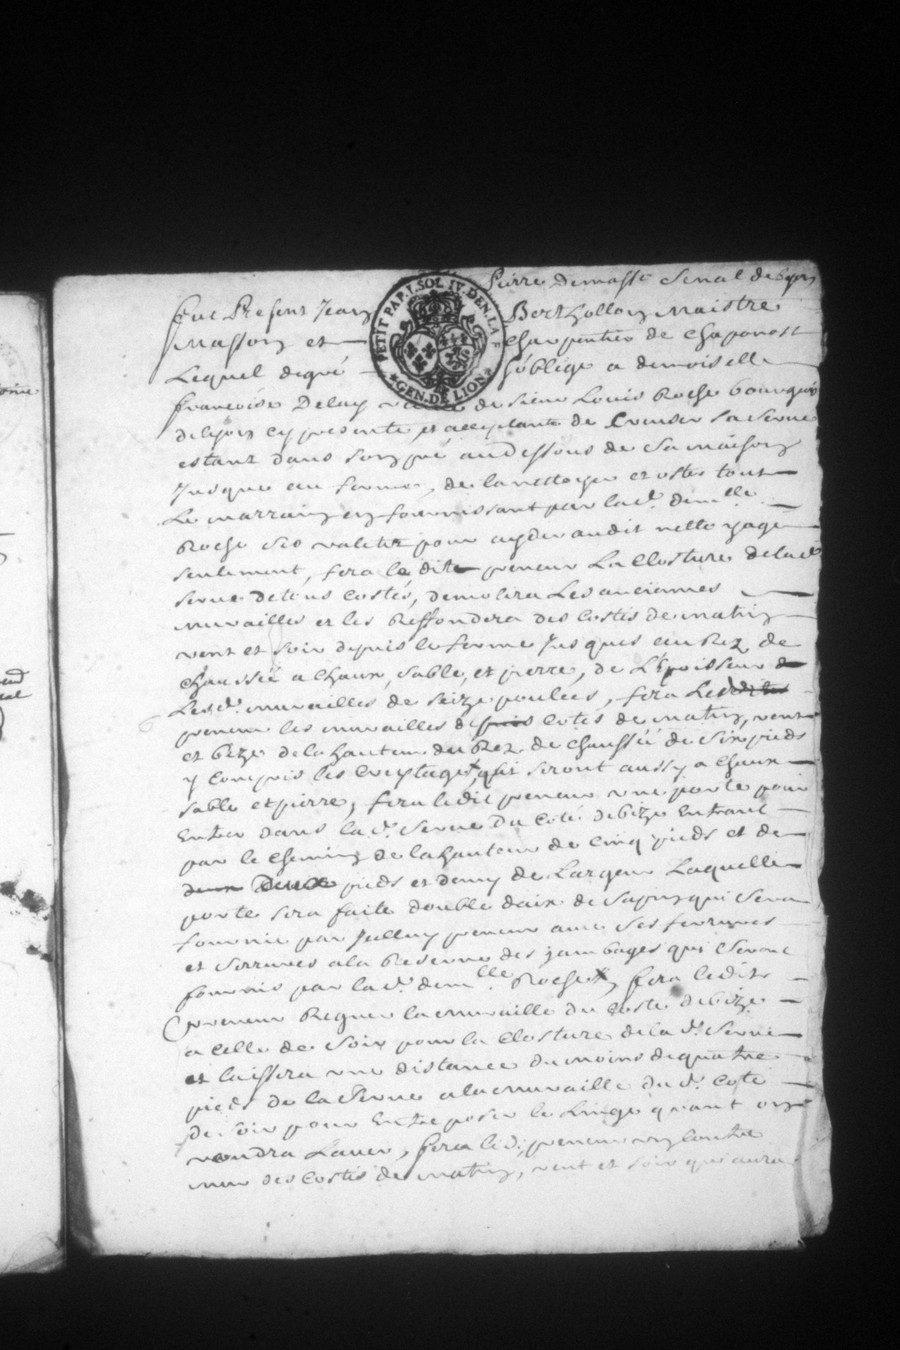 Pierre demasse Senal de
fut Present Jean Berthollon Maistre
Masson et charpentier de chaponost
Lequel degré soblige a demoiselle
francoise Delay de sieur Louis Roche bourgois
delyon cy presente et acceptante de Creuser sa Serve
estant dans son pré audessous de Sa maison
Jusque au ferme, de la nettoyer et oster tout
Le marrain en fournissant par lad. demlle
Roche ses valets pour ayder audit nettoyage
seulement, fera le dit preneur La Closture delad
serve detous Costés, demolira Les anciennes
murailles et les Reffondera des Costés de matin
vent et soir depuis le ferme Jusques au Rez de
chaussée a chaux, sable, et pierre, de L'Epoisseur de
Lesd. murailles de seize poulces, fera Ledit
preneur les murailles de cotés de matin, vent
et bize dela hauteur du Rez de chaussée de Six pieds
y Compris les qui seront aussy a chaux
sable et pierre, fera ledit preneur une porte pour
Entrer dans lad. Serve Du Coté debize Entrant
par le chemin de lahauteur de Cinq pieds et de
deux pieds et demy de Largeur Laquelle
porte sera faite double daix de Sapin qui Sera
fournie par preneur avec Ses ferrures
et Serrures a la Reserve des jambages qui Seront
fournis par lad. demlle Roche, fera ledit
preneur Regner la muraille du Coste debize
a Celle de Soir pour la Closture de la d. Serve
et laissera une distance du moins dequatre
pieds de la Serve a la muraille du d. Costé
de Soir pour Entreposer le Linge quant on
voudra Laver, fera led. preneur un contre
mur des Costés de matin, vent et soir qui aura
PETIT PAP. 1. SOL IV. DEN. LA F
GEN. DE LION